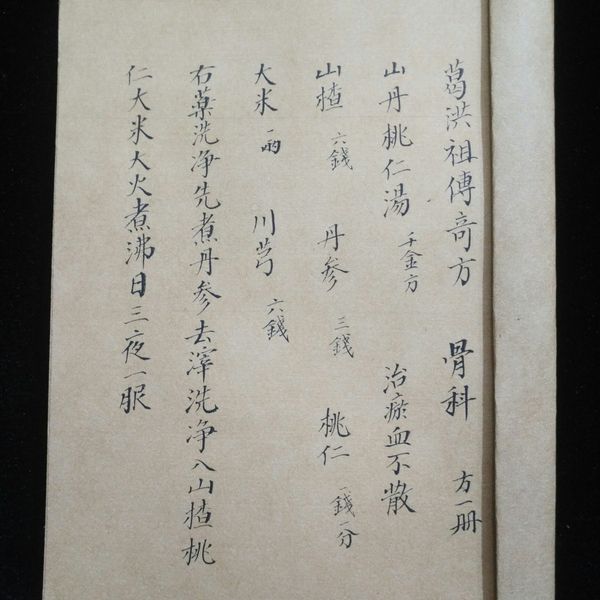 葛洪祖傳奇方 骨科 方一册
山丹桃仁湯 千金方 治瘀血不散
山楂 六錢 丹参 三錢 桃仁 一錢一分
大米 一兩 川芎 六錢
右藥洗净先煮丹参去滓洗净入山楂桃
仁大米大火煮沸日三夜一服